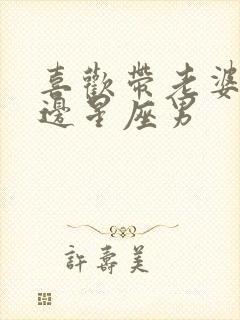 喜歡帶老婆
邊星座男
許壽美